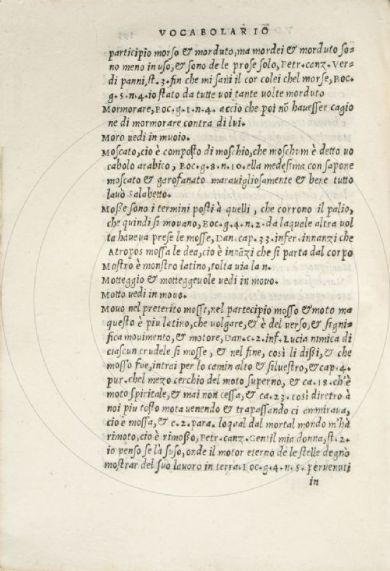 VOCABOLARIO
participio morso & morduto, ma mordei & morduto so-
no meno in uso, & sono de le prose solo, Petr. canz. Ver-
di panni, st. 3. fin che mi sani il cor colei chel morse, Boc.
g. 5. n. 4. io stato da tutte voi tante volte morduto
Mormorare, Boc. g. 1. n. 4. accio che poi nō hauesser cagio
ne di mormorare contra di lui.
Moro uedi in muoio.
Moscato, cio è composto di moschio, che moschum è detto uo
cabolo arabico, Boc. g. 8. n. 10. ella medesima con sapone
moscato & garofanato marauigliosamente & bene tutto
lauò Salabetto.
Mosse sono i termini posti à quelli, che corrono il palio,
che quindi si mouano, Boc. g. 4. n. 2. da laquale altra uol
ta haueua prese le mosse, Dan. cap. 33. infer. innanzi che
Atropos mossa le dea, cio è inãzi che si parta dal corpo
Mostro è monstro latino, tolta uia la n.
Motteggio & motteggeuole uedi in mouo.
Motto uedi in mouo.
Mouo nel preterito mosse, nel partecipio mosso & moto ma
questo è piu latino, che uolgare, & è del uerso, & signi-
fica mouimento, & motore, Dan. c. 2. inf. Lucia nimica di
ciascun crudele si mosse, & nel fine, così li dißi, & che
mosso fue, intrai per lo camin alto & siluestro, & cap. 4.
pur. chel mezo cerchio del moto superno, & ca. 18. ch'è
moto spiritale, & mai non cessa, & ca. 23. così diretro à
noi piu tosto mota uenendo & trapassando ci ammiraua,
cio è mossa, & c. 2. para. loqual dal mortal mondo m'hà
rimoto, cio è rimosso, Petr. canz. Gentil mia donna, st. 2.
io penso se là suso, onde il motor eterno de le stelle degnò
mostrar del suo lauoro in terra. Boc. g. 4. n. 5. peruenuti
in